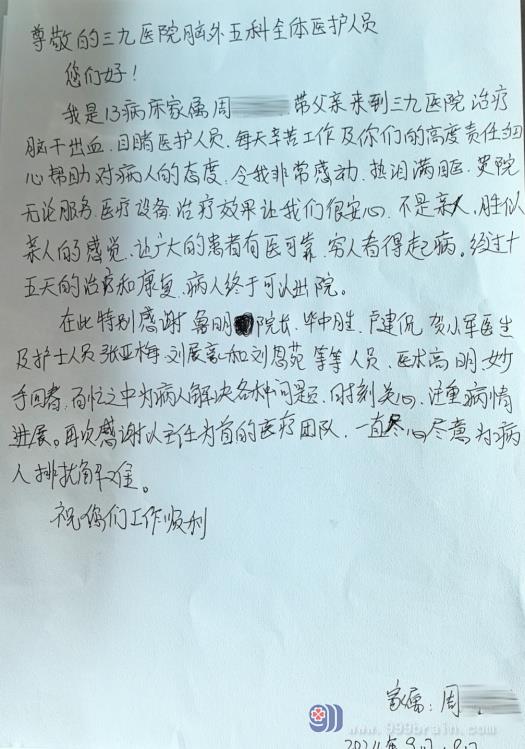 尊敬的三九医院脑外五科全体医护人员
您们好!
我是13病床家属周 带父亲来到三九医院治疗
脑干出血.目睹医护人员.每天辛苦工作及你们的高度责任
心帮助对病人的态度.令我非常感动.热泪满目.贵院
无论服务.医疗设备.治疗效果让我们很安心.不是亲人.胜似
亲人的感觉.让广大的患者有医可靠.穷人看得起病。经过十
五天的治疗和康复.病人终于可以出院。
在此特别感谢 鲁明 院长.毕中胜.卢建侃.贺小军医生
及护士人员张亚梅.刘展豪和刘思苑等等人员.医术高明.妙
手回春.百忙之中为病人解决各种问题.时刻关心.注重病情
进展。再次感谢以主任为首的医疗团队.一直尽心尽意为病
人排扰解难。
祝您们工作顺利
家属:周
www.999brain.com